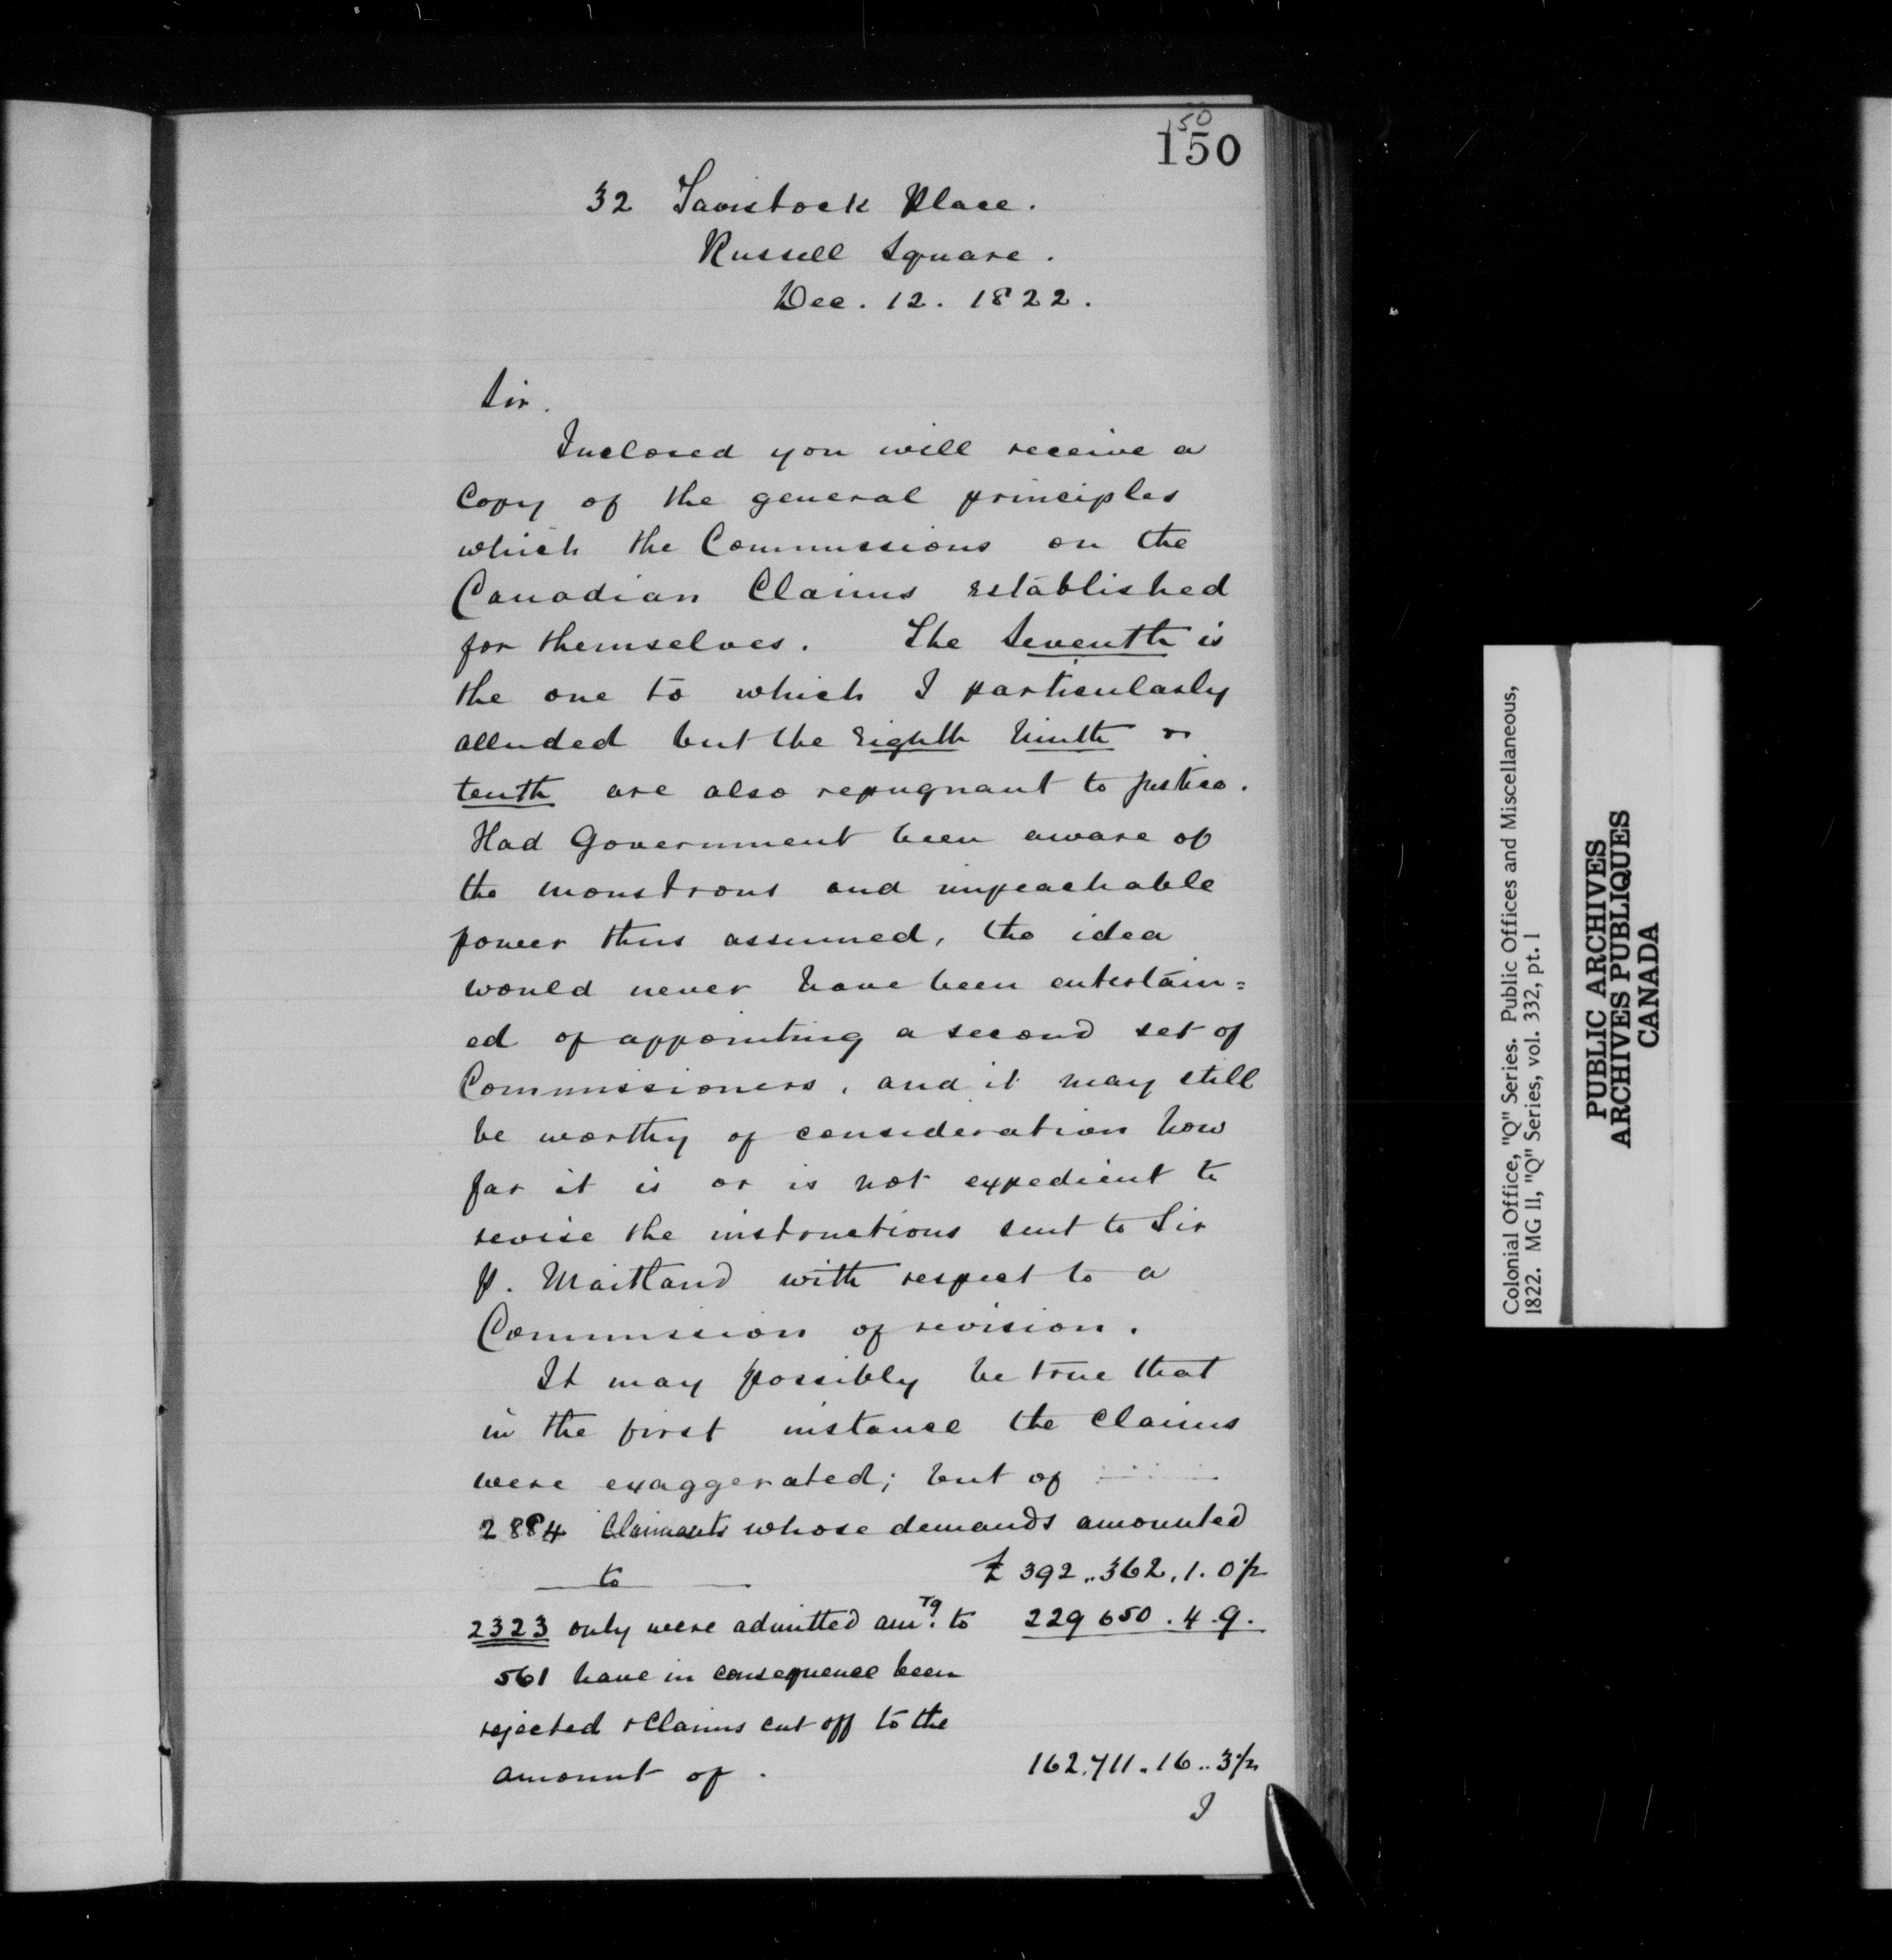 50
150
32 Tavistock Place.
Russell Square.
Dec. 12. 1822.
Sir.
Inclosed you will receive a
Copy of the general principles
which the Commissions on the
Canadian Claims established
for themselves. The Seventh is
the one to which I particularly
alluded but the eighth ninth or
tenth are also repugnant to justice.
Had Government been aware of
the monstrous and impeachable
power thus assumed, the idea
would never have been entertain=
ed of appointing a second set of
Commissioners, and it may still
be worthy of consideration how
far it is or is not expedient to
revise the instructions sent to Sir
P. Maitland with respect to a
Commission of revision.
It may possibly be true that
in the first instance the claims
were exaggerated; but of
2884 Claimants whose demands amounted
to £ 392..362.1.0½
2323 only were admitted am.tg to 229650.4.9.
561 have in consequence been
rejected & Claims cut off to the
amount of. 162.711.16..3½
I
Colonial Office, "Q" Series. Public Offices and Miscellaneous,
1822. MG 11, "Q" Series, vol. 332, pt. 1
PUBLIC ARCHIVES
ARCHIVES PUBLIQUES
CANADA